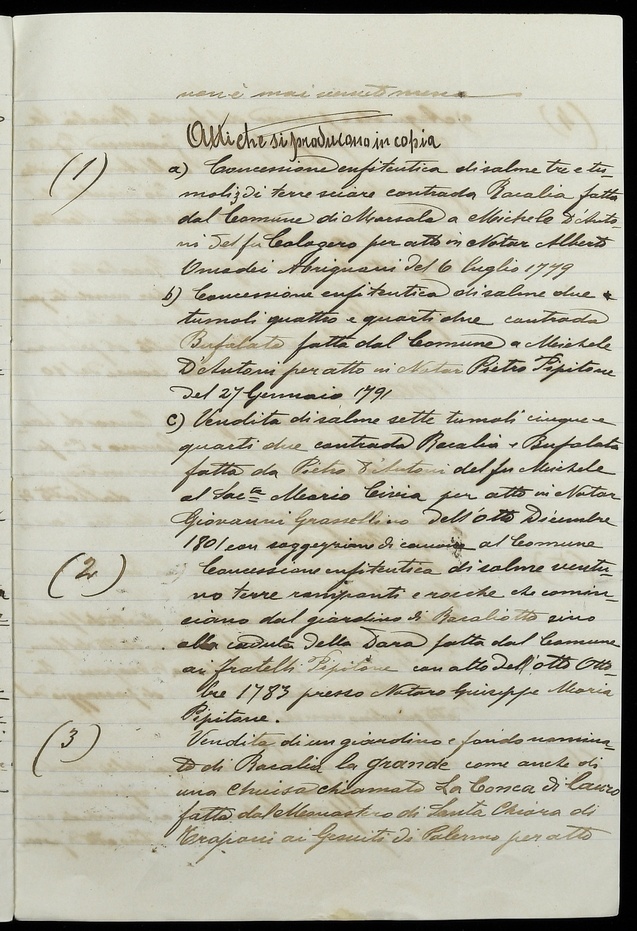 non è mai venuto meno
Atti che si producono in copia
(1)
a) Concessione enfiteutica di salme tre e tu-
moli 3 di terre sciare contrada Racalia fatta
dal Comune di Marsala a Michele D'Anto-
ni del fu Calogero per atto in Notar Alberto
Omodei Abrignani del 6 luglio 1779
b) Concessione enfiteutica di salme due e
tumoli quattro e quarti due contrada
Bufalata fatta dal Comune a Michele
D'Antoni per atto in Notar Pietro Pipitone
del 27 Gennaio 1791
c) Vendita di salme sette tumoli cinque e
quarti due contrada Racalia e Bufalata
fatta da Pietro D'Antoni del fu Michele
al Sacte Mario Civia per atto in Notar
Giovanni Grassellino dell'otto Dicembre
1801 con soggezione di canone al Comune
(2)
Concessione enfiteutica di salme ventu-
no terre rampanti e rocche che comin-
ciano dal giardino di Racaliotto sino
alla caduta della Dara fatta dal Comune
ai fratelli Pipitone con atto dell'otto Otto-
bre 1783 presso Notaro Giuseppe Maria
Pipitone.
(3)
Vendita di un giardino e fondo nomina-
to di Racalia la grande come anche di
una chiusa chiamata La Conca di lauro
fatta dal Monastero di Santa Chiara di
Trapani ai Gesuiti di Palermo per atto